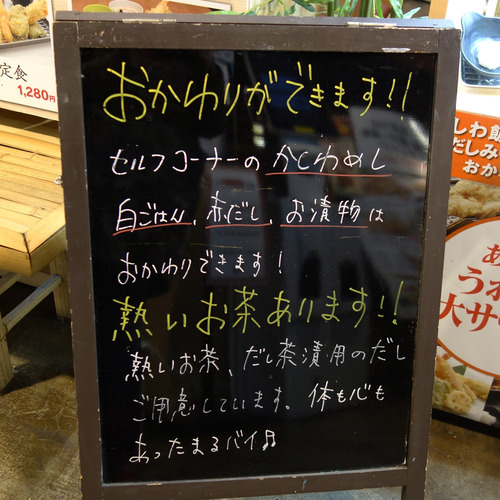 定食
1,280円
おかわりができます!!
セルフコーナーの かしわめし
白ごはん、赤だし、お漬物は
おかわりできます!
熱いお茶あります!!
熱いお茶、だし茶漬用のだし
ご用意しています。体も心も
あったまるバイ♫
しわ飯
だしみ
おか
あ
うれ
大サ